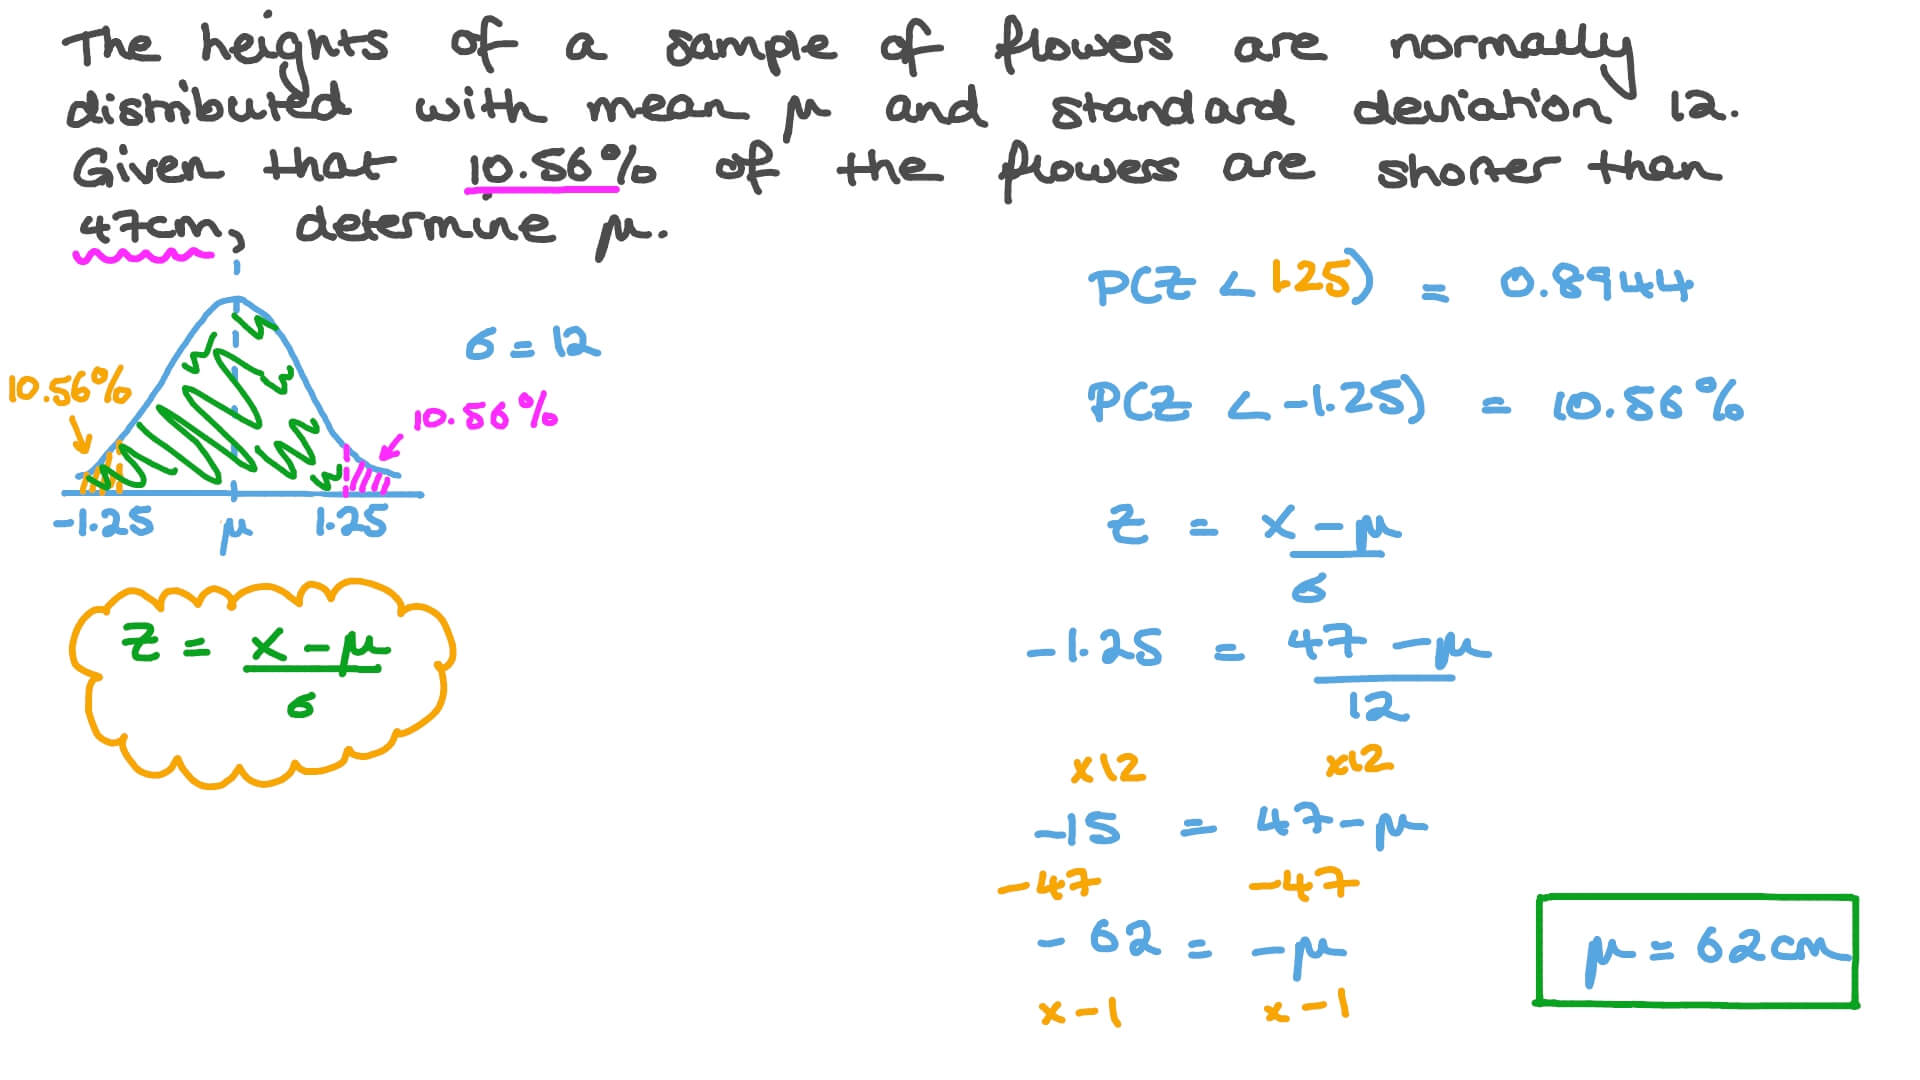 The heights of a sample of flowers are normally
distributed with mean μ and standard deviation 12.
Given that 10.56% of the flowers are shorter than
47cm, determine μ.
σ = 12
10.56%
10.56%
-1.25 μ 1.25
Z = x - μ
σ
P(Z < 1.25) = 0.8944
P(Z < -1.25) = 10.56%
Z = x - μ
σ
-1.25 = 47 - μ
12
x12 x12
-15 = 47 - μ
-47 -47
-62 = -μ
x -1 x -1
μ = 62cm